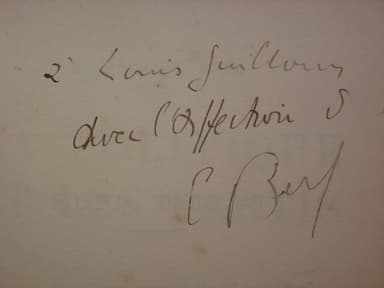 à Louis Guilloux
avec l'affection d
E Berl